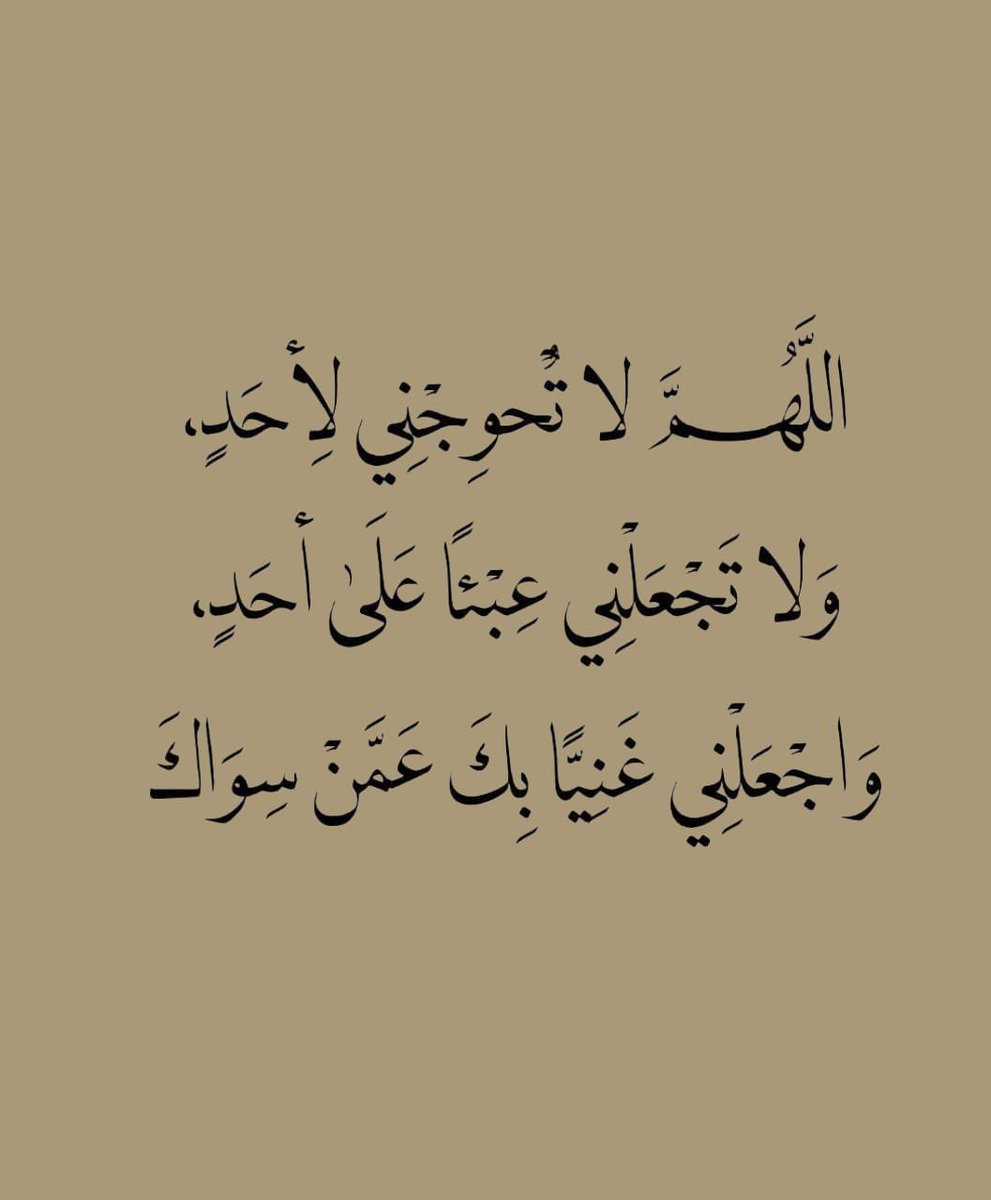 اللَّهُمَّ لا تُحوِجْنِي لِأحَدٍ،
وَلا تَجْعَلْنِي عِبْئًا عَلَىٰ أحَدٍ،
وَاجْعَلْنِي غَنِيًّا بِكَ عَمَّنْ سِوَاكَ